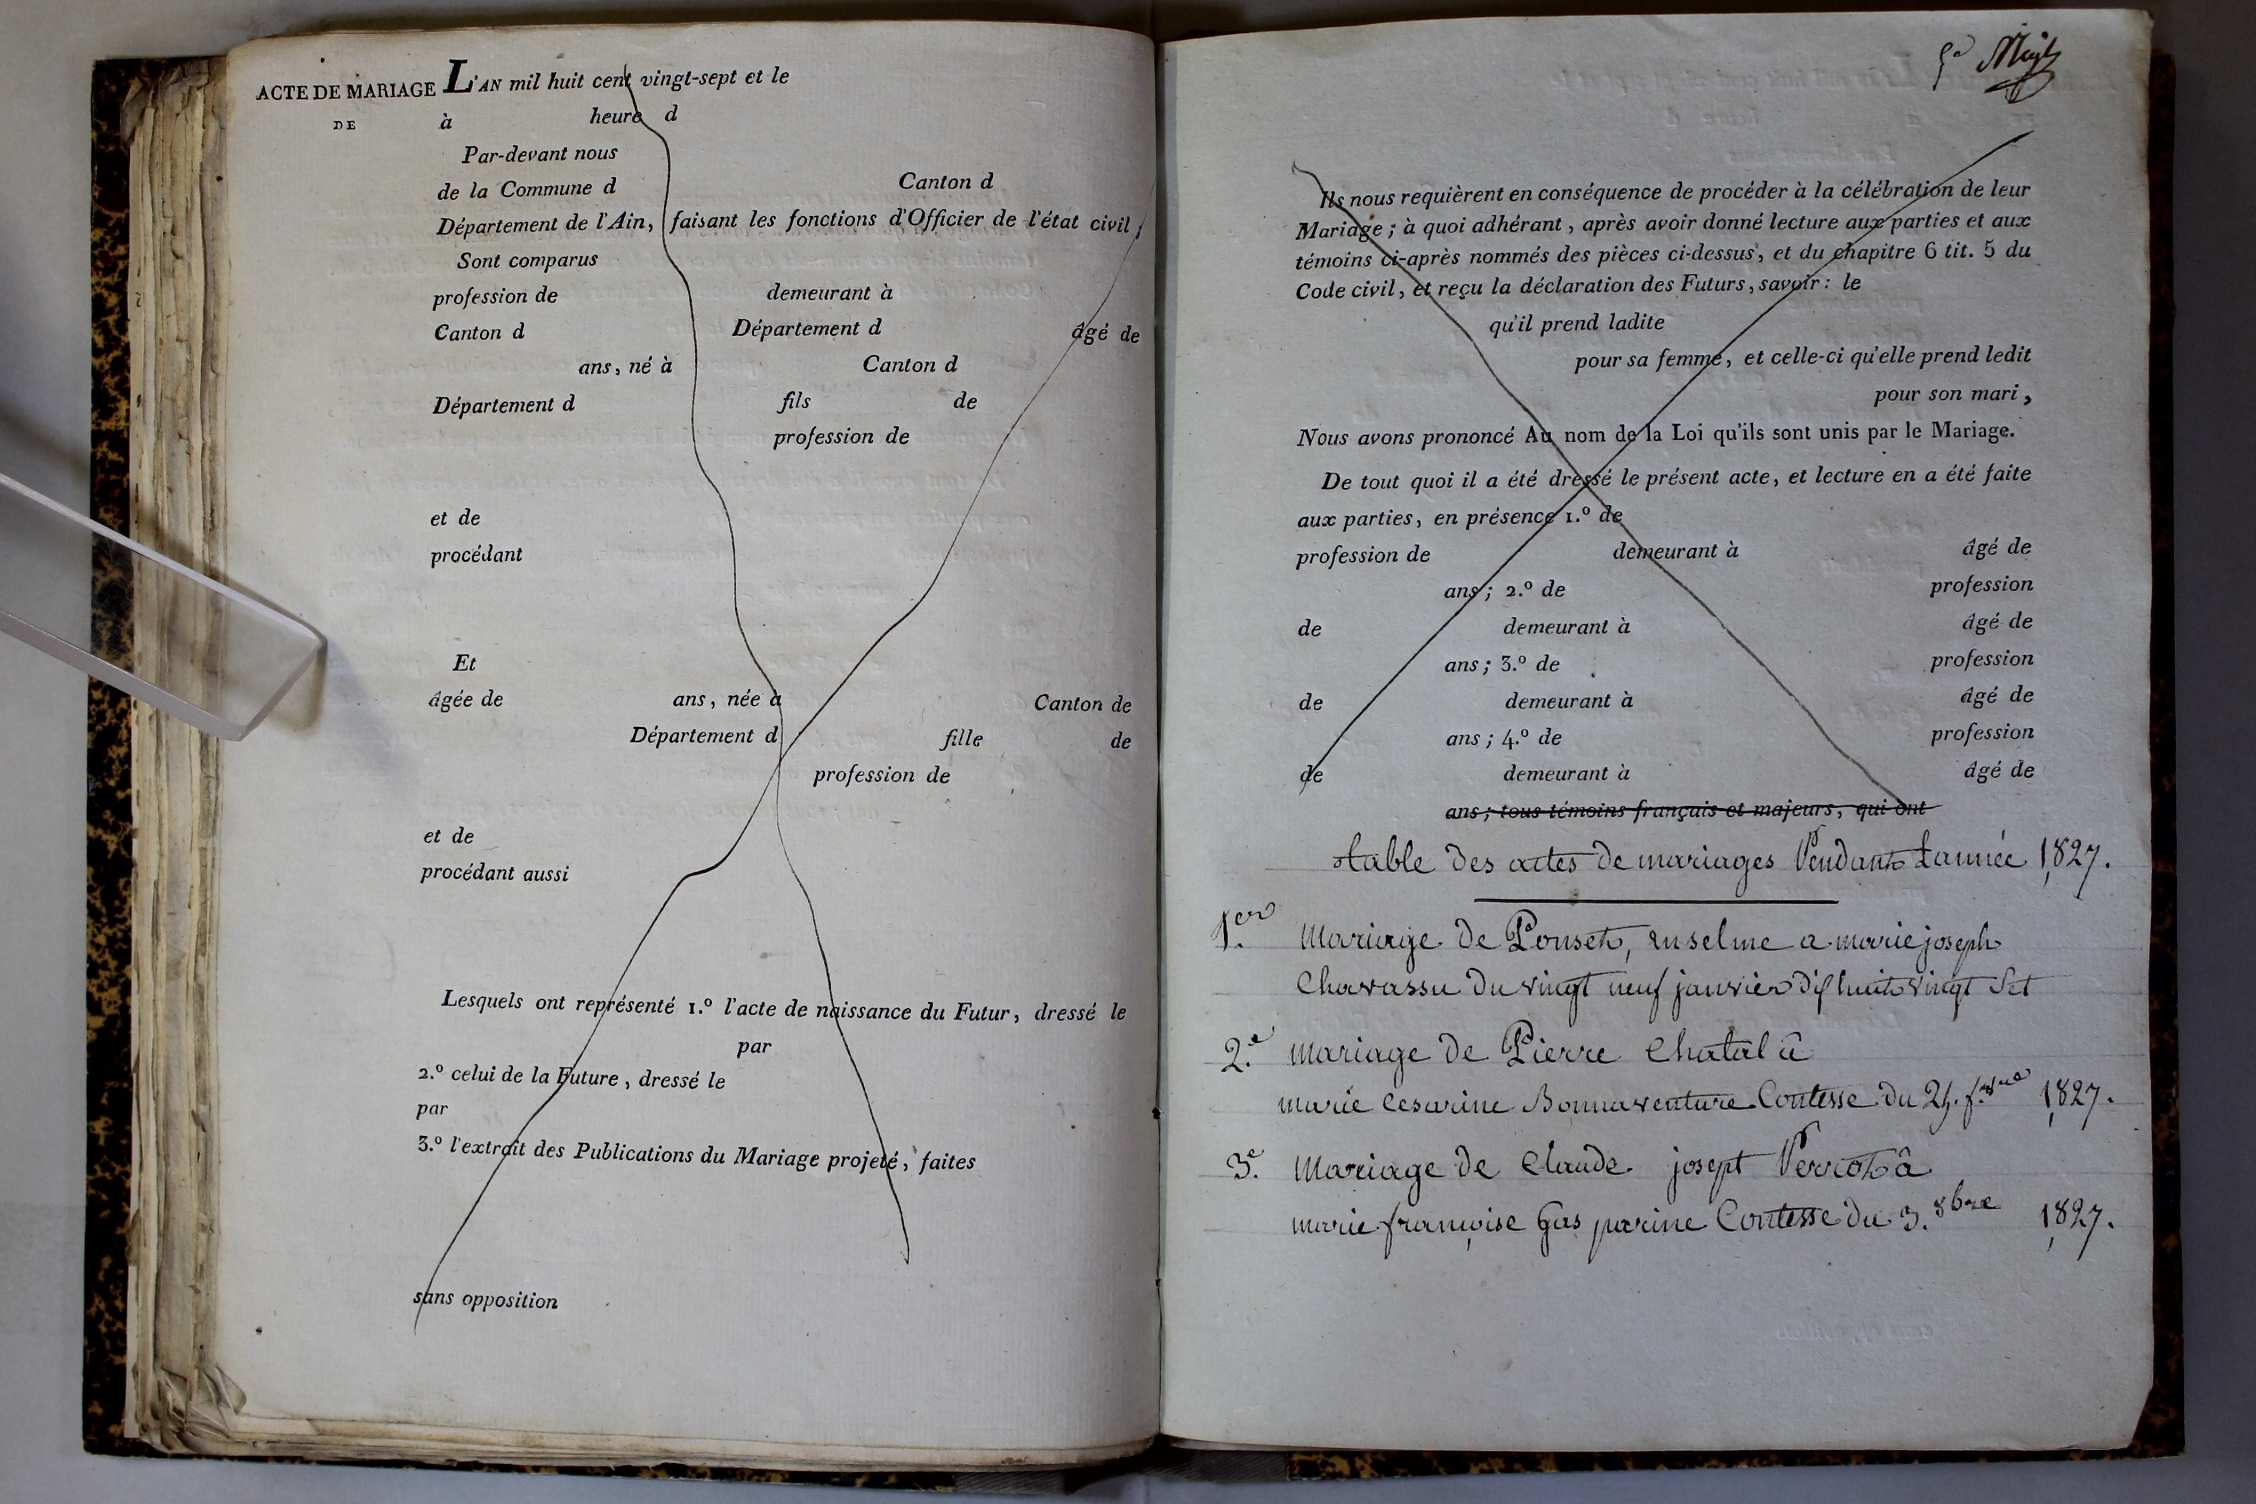 ACTE DE MARIAGE L'AN mil huit cent vingt-sept et le
DE à heure d
Par-devant nous
de la Commune d Canton d
Département de l'Ain, faisant les fonctions d'Officier de l'état civil,
Sont comparus
profession de demeurant à
Canton d Département d âgé de
ans, né à Canton d
Département d fils de
profession de
et de
procédant
Et
âgée de ans, née à Canton de
Département d fille de
profession de
et de
procédant aussi
Lesquels ont représenté 1.º l'acte de naissance du Futur, dressé le
par
2.º celui de la Future, dressé le
par
3.º l'extrait des Publications du Mariage projeté, faites
sans opposition
Ils nous requièrent en conséquence de procéder à la célébration de leur
Mariage; à quoi adhérant, après avoir donné lecture aux parties et aux
témoins ci-après nommés des pièces ci-dessus, et du chapitre 6 tit. 5 du
Code civil, et reçu la déclaration des Futurs, savoir: le
qu'il prend ladite
pour sa femme, et celle-ci qu'elle prend ledit
pour son mari,
Nous avons prononcé Au nom de la Loi qu'ils sont unis par le Mariage.
De tout quoi il a été dressé le présent acte, et lecture en a été faite
aux parties, en présence 1.º de
profession de demeurant à âgé de
ans; 2.º de profession
de demeurant à âgé de
ans; 3.º de profession
de demeurant à âgé de
ans; 4.º de profession
de demeurant à âgé de
ans; tous témoins français et majeurs, qui ont
table des actes de mariages Pendant Lannée 1827.
1.er mariage de Ponset, enselme a marie joseph
Chavassu du vingt neuf janvier dix huit vingt Set
2.e mariage de Pierre Chatal â
marie Cesarine Bonnaventure Contesse du 1827.
3.e Mariage de Claude josept Perrot â
marie françoise Gas parine Contesse du 3. 8bre 1827.